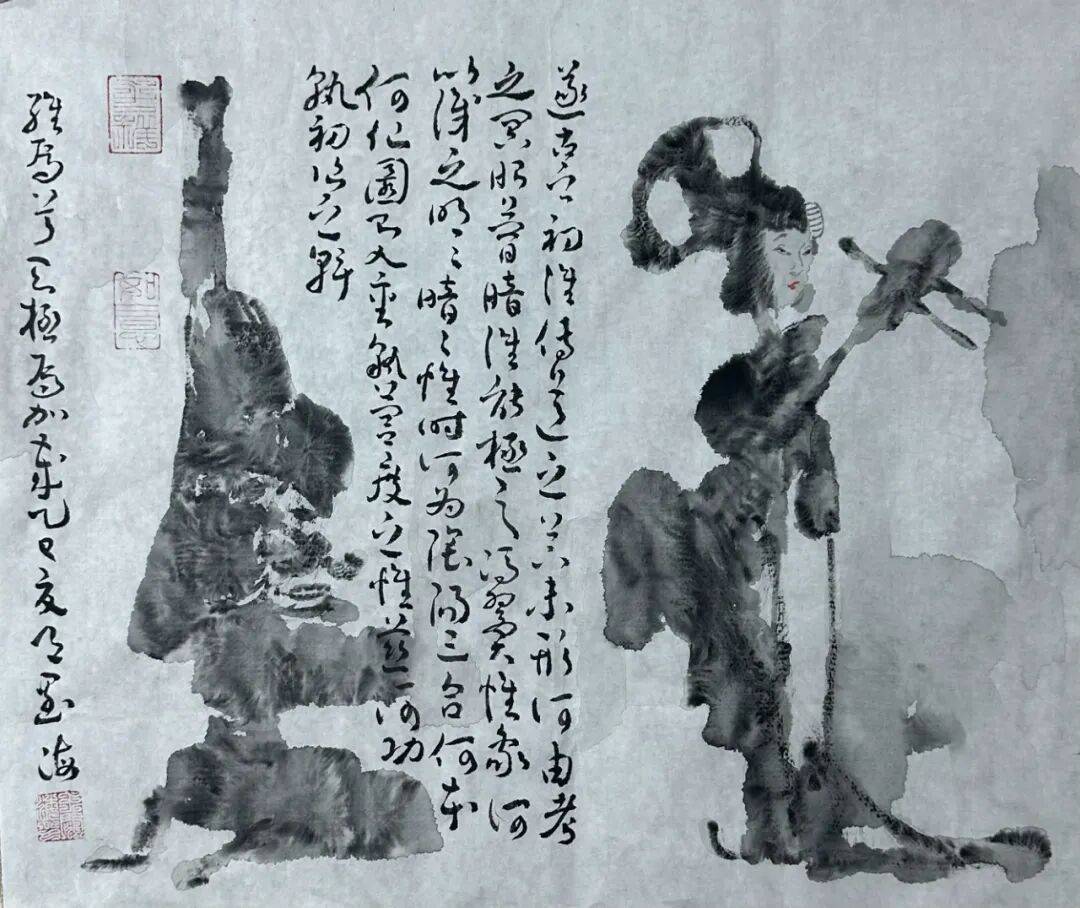 遂古之初誰傳道之上下未形何由考
之冥昭瞢暗誰能極之馮翼惟象何
以識之明々暗々惟時何为陰陽三合何本
何化圜則九重孰營度之惟茲何功
孰初作之斡
維焉系天極焉加歲乙巳夏海